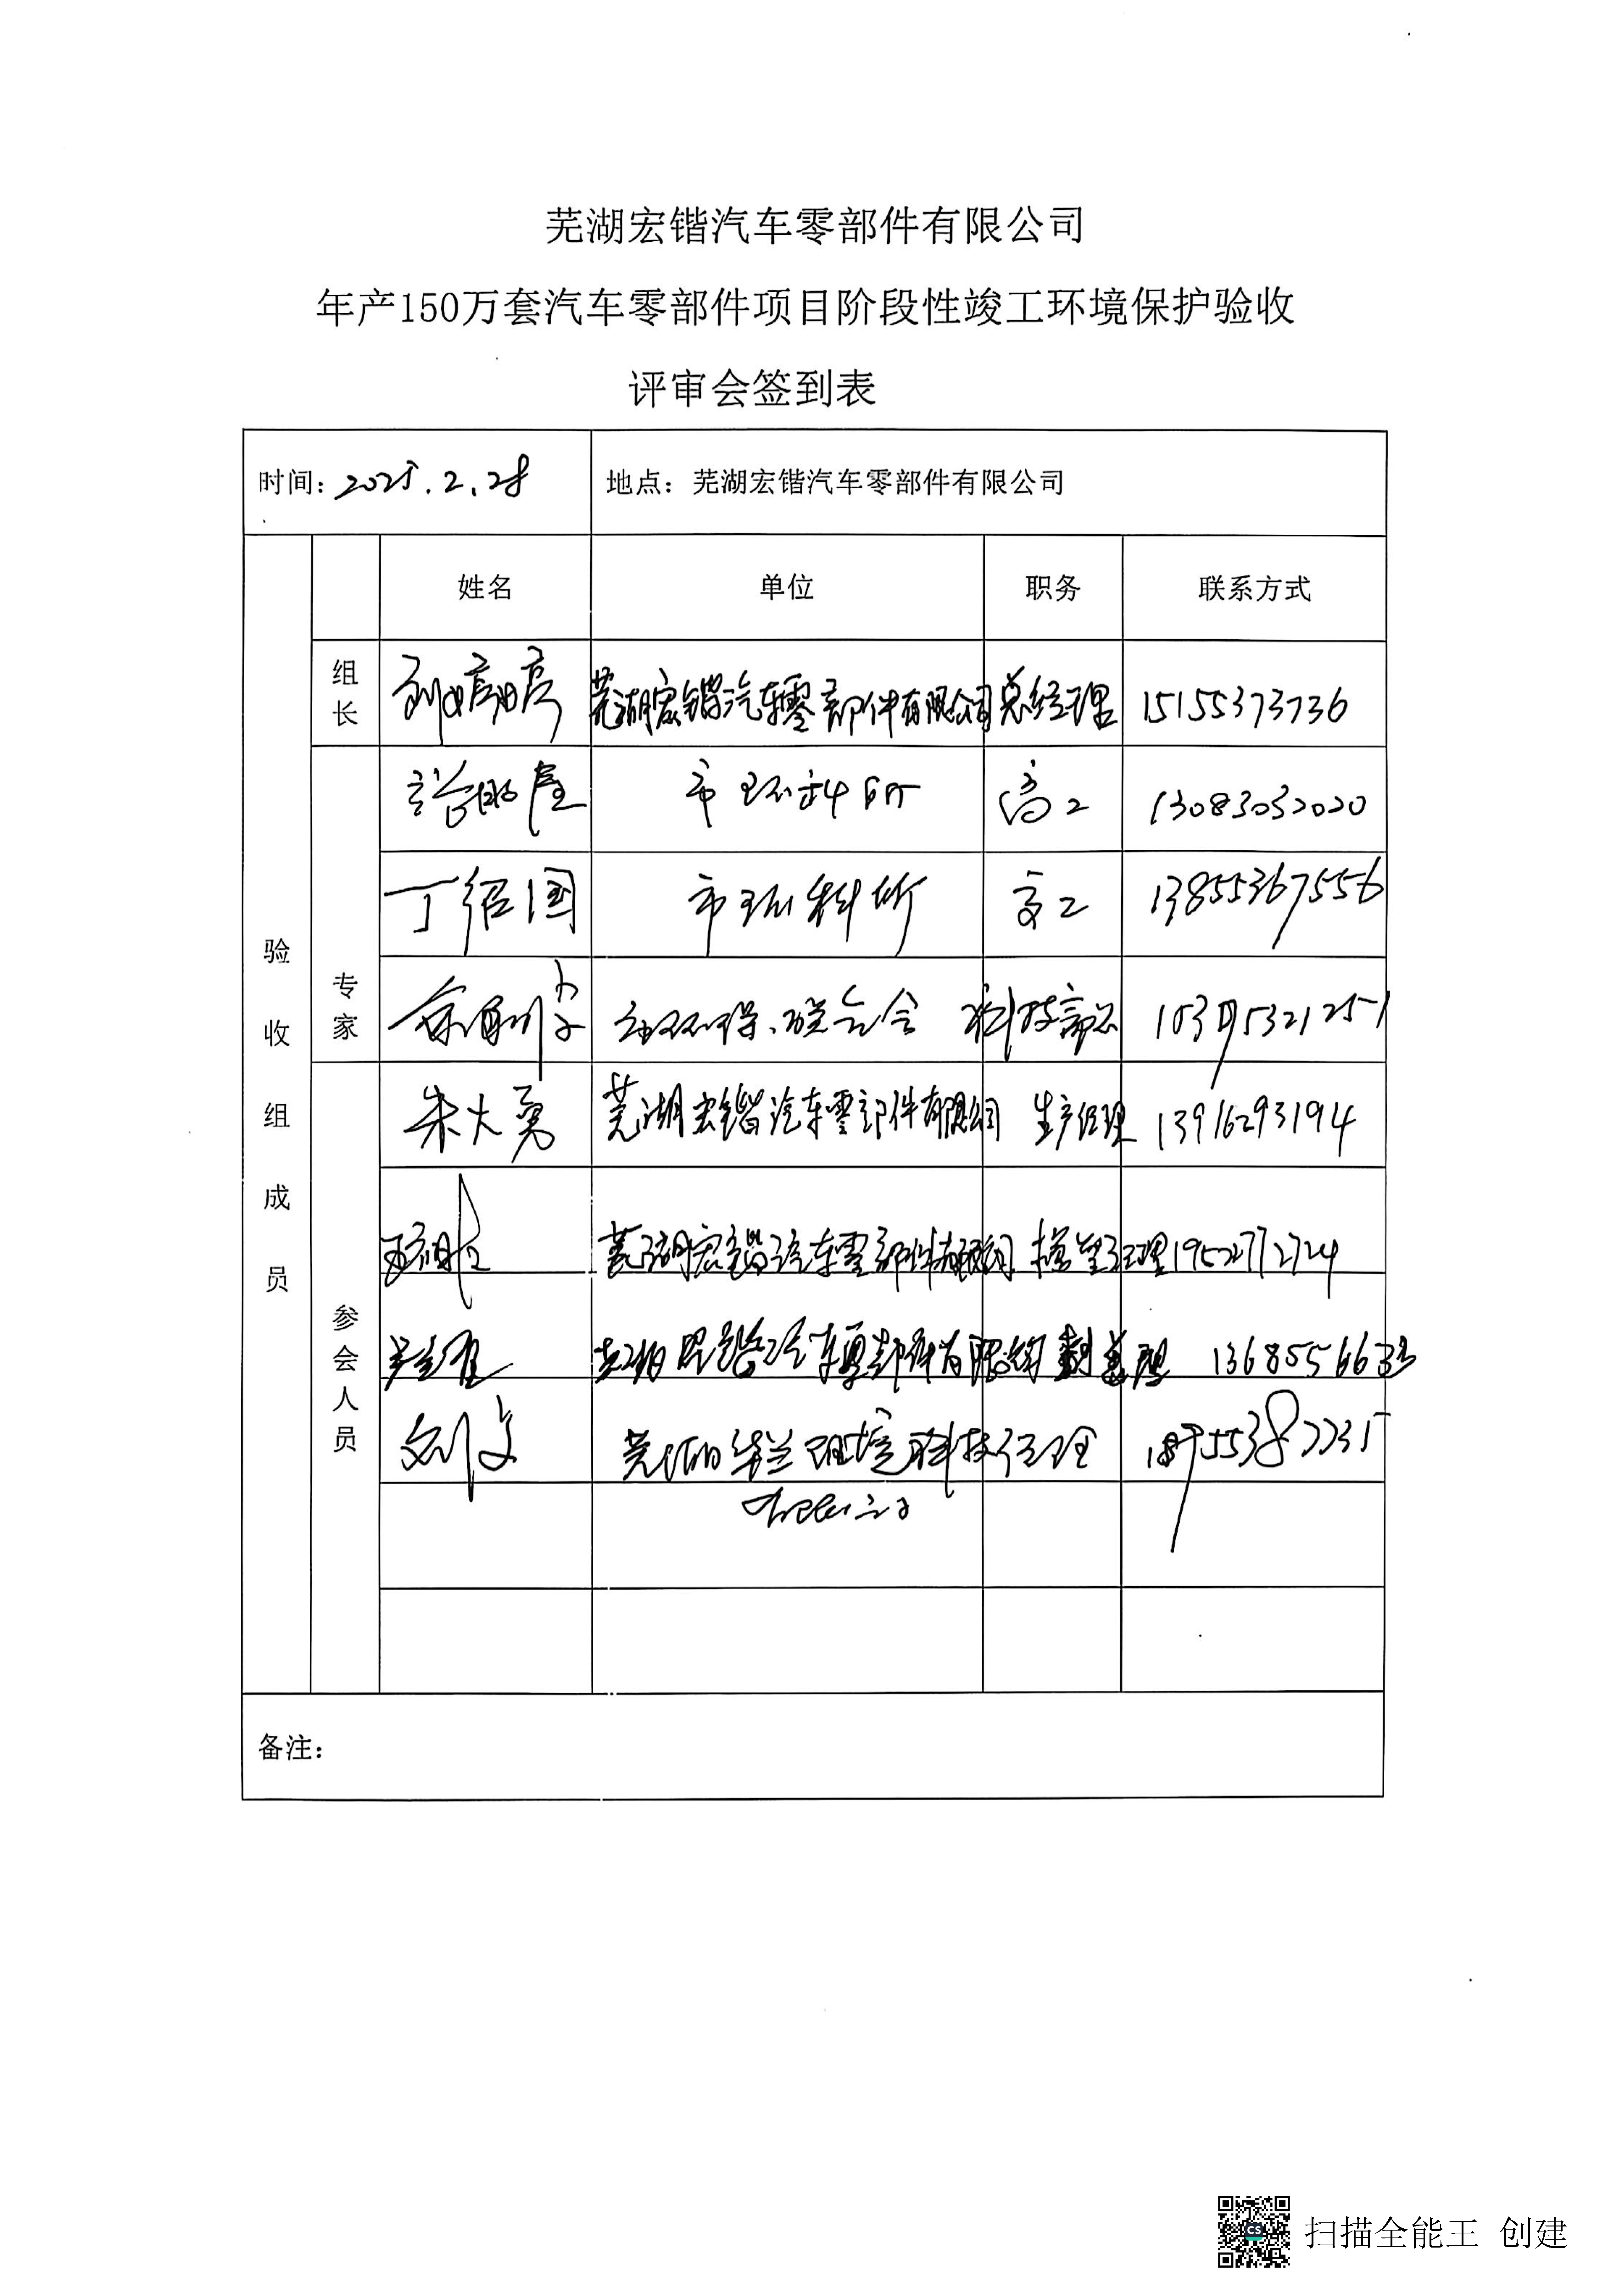 芜湖宏锴汽车零部件有限公司
年产150万套汽车零部件项目阶段性竣工环境保护验收
评审会签到表
时间：2025.2.28 地点：芜湖宏锴汽车零部件有限公司
验收组成员
姓名 单位 职务 联系方式
组长 芜湖宏锴汽车零部件有限公司 总经理 15155373736
专家
市环科所 高工 13083032020
丁绍国 市环科所 高工 13855367556
市环保联合会
参会人员
朱大勇 芜湖宏锴汽车零部件有限公司 生产经理 13916293194
芜湖宏锴汽车零部件有限公司 经理 19527712724
芜湖宏锴汽车零部件有限公司 1368556633
刘文 芜湖华兰环境科技 经理
有限公司
备注：
扫描全能王 创建